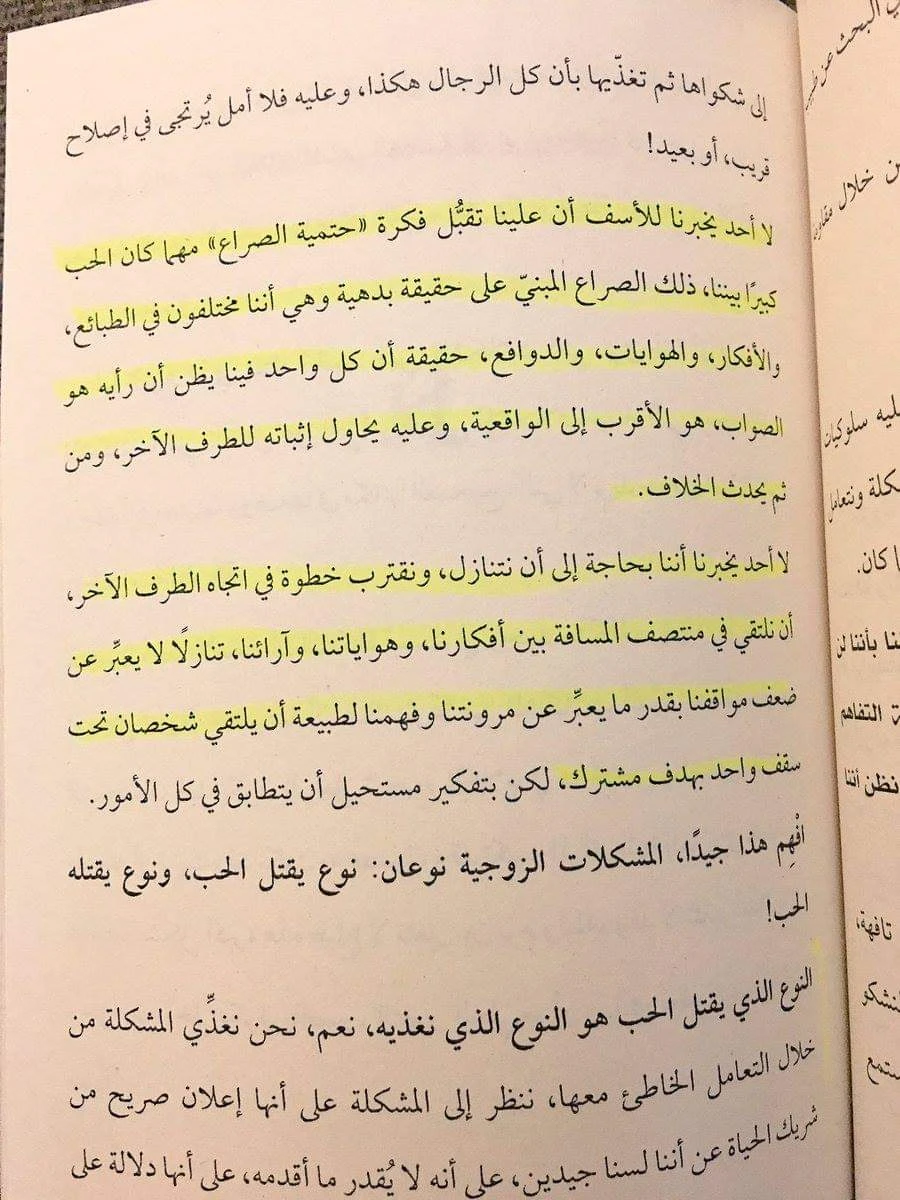 إلى شكواها ثم تغذّيها بأن كل الرجال هكذا، وعليه فلا أمل يُرتجى في إصلاح
قريب، أو بعيد!
لا أحد يخبرنا للأسف أن علينا تقبُّل فكرة «حتمية الصراع» مهما كان الحب
كبيرًا بيننا، ذلك الصراع المبنيّ على حقيقة بدهية وهي أننا مختلفون في الطبائع،
والأفكار، والهوايات، والدوافع، حقيقة أن كل واحد فينا يظن أن رأيه هو
الصواب، هو الأقرب إلى الواقعية، وعليه يحاول إثباته للطرف الآخر، ومن
ثم يحدث الخلاف.
لا أحد يخبرنا أننا بحاجة إلى أن نتنازل، ونقترب خطوة في اتجاه الطرف الآخر،
أن نلتقي في منتصف المسافة بين أفكارنا، وهواياتنا، وآرائنا، تنازلًا لا يعبِّر عن
ضعف مواقفنا بقدر ما يعبِّر عن مرونتنا وفهمنا لطبيعة أن يلتقي شخصان تحت
سقف واحد بهدف مشترك، لكن بتفكير مستحيل أن يتطابق في كل الأمور.
افْهِم هذا جيدًا، المشكلات الزوجية نوعان: نوع يقتل الحب، ونوع يقتله
الحب!
النوع الذي يقتل الحب هو النوع الذي نغذيه، نعم، نحن نغذِّي المشكلة من
خلال التعامل الخاطئ معها، ننظر إلى المشكلة على أنها إعلان صريح من
شريك الحياة عن أننا لسنا جيدين، على أنه لا يُقدر ما أقدمه، على أنها دلالة على
البحث عن
من خلال
سلوكيات
ونتعامل
كان.
بأننا لن
التفاهم
نظن أننا
تافهة،